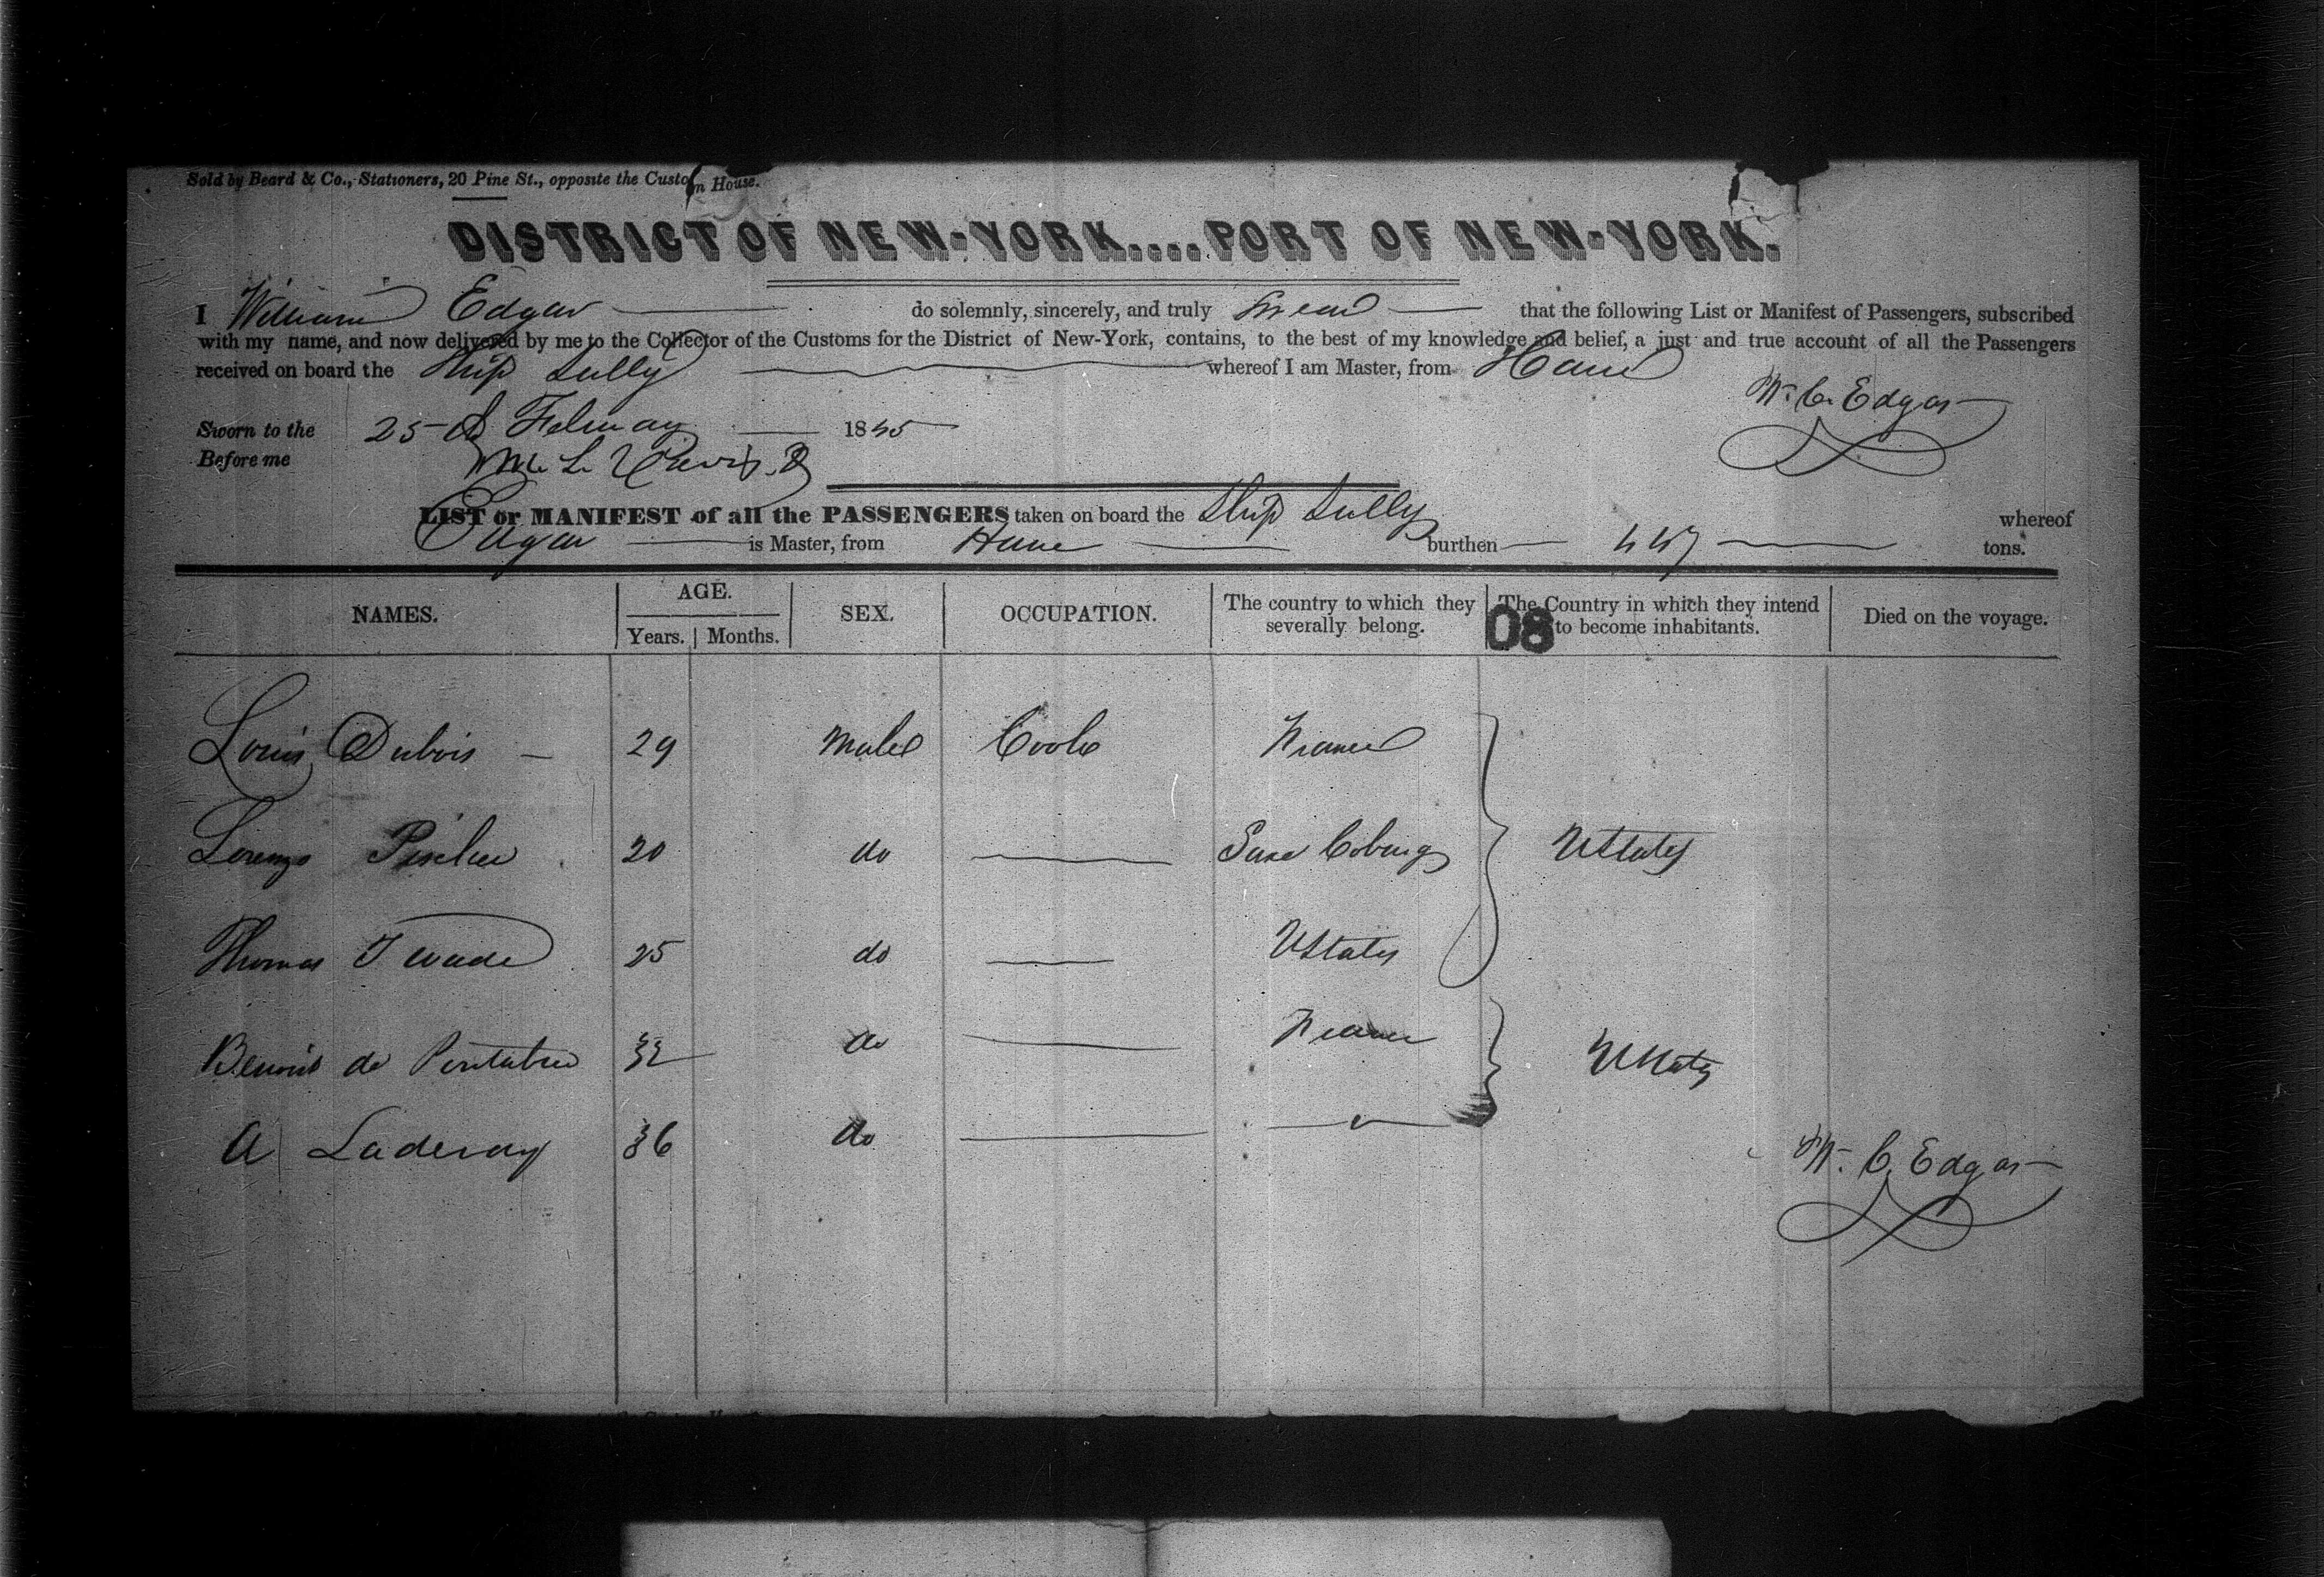 Sold by Beard & Co., Stationers, 20 Pine St., opposite the Custom House.
DISTRICT OF NEW-YORK....PORT OF NEW-YORK.
I William Edgar do solemnly, sincerely, and truly swear that the following List or Manifest of Passengers, subscribed
with my name, and now delivered by me to the Collector of the Customs for the District of New-York, contains, to the best of my knowledge and belief, a just and true account of all the Passengers
received on board the Ship Sully whereof I am Master, from Havre
Wm. C. Edgar
Sworn to the 25 February 1845
Before me
LIST or MANIFEST of all the PASSENGERS taken on board the Ship Sully whereof
Edgar is Master, from Havre burthen 447 tons.
NAMES. AGE. Years. Months. SEX. OCCUPATION. The country to which they severally belong. The Country in which they intend to become inhabitants. Died on the voyage.
08
Louis Dubois 29 Male Cook France
Lorenzo 20 do Saxe Coburg UStates
Thomas 25 do UStates
Benoist de 32 do France UStates
A Laderay 36 do
Wm. C. Edgar